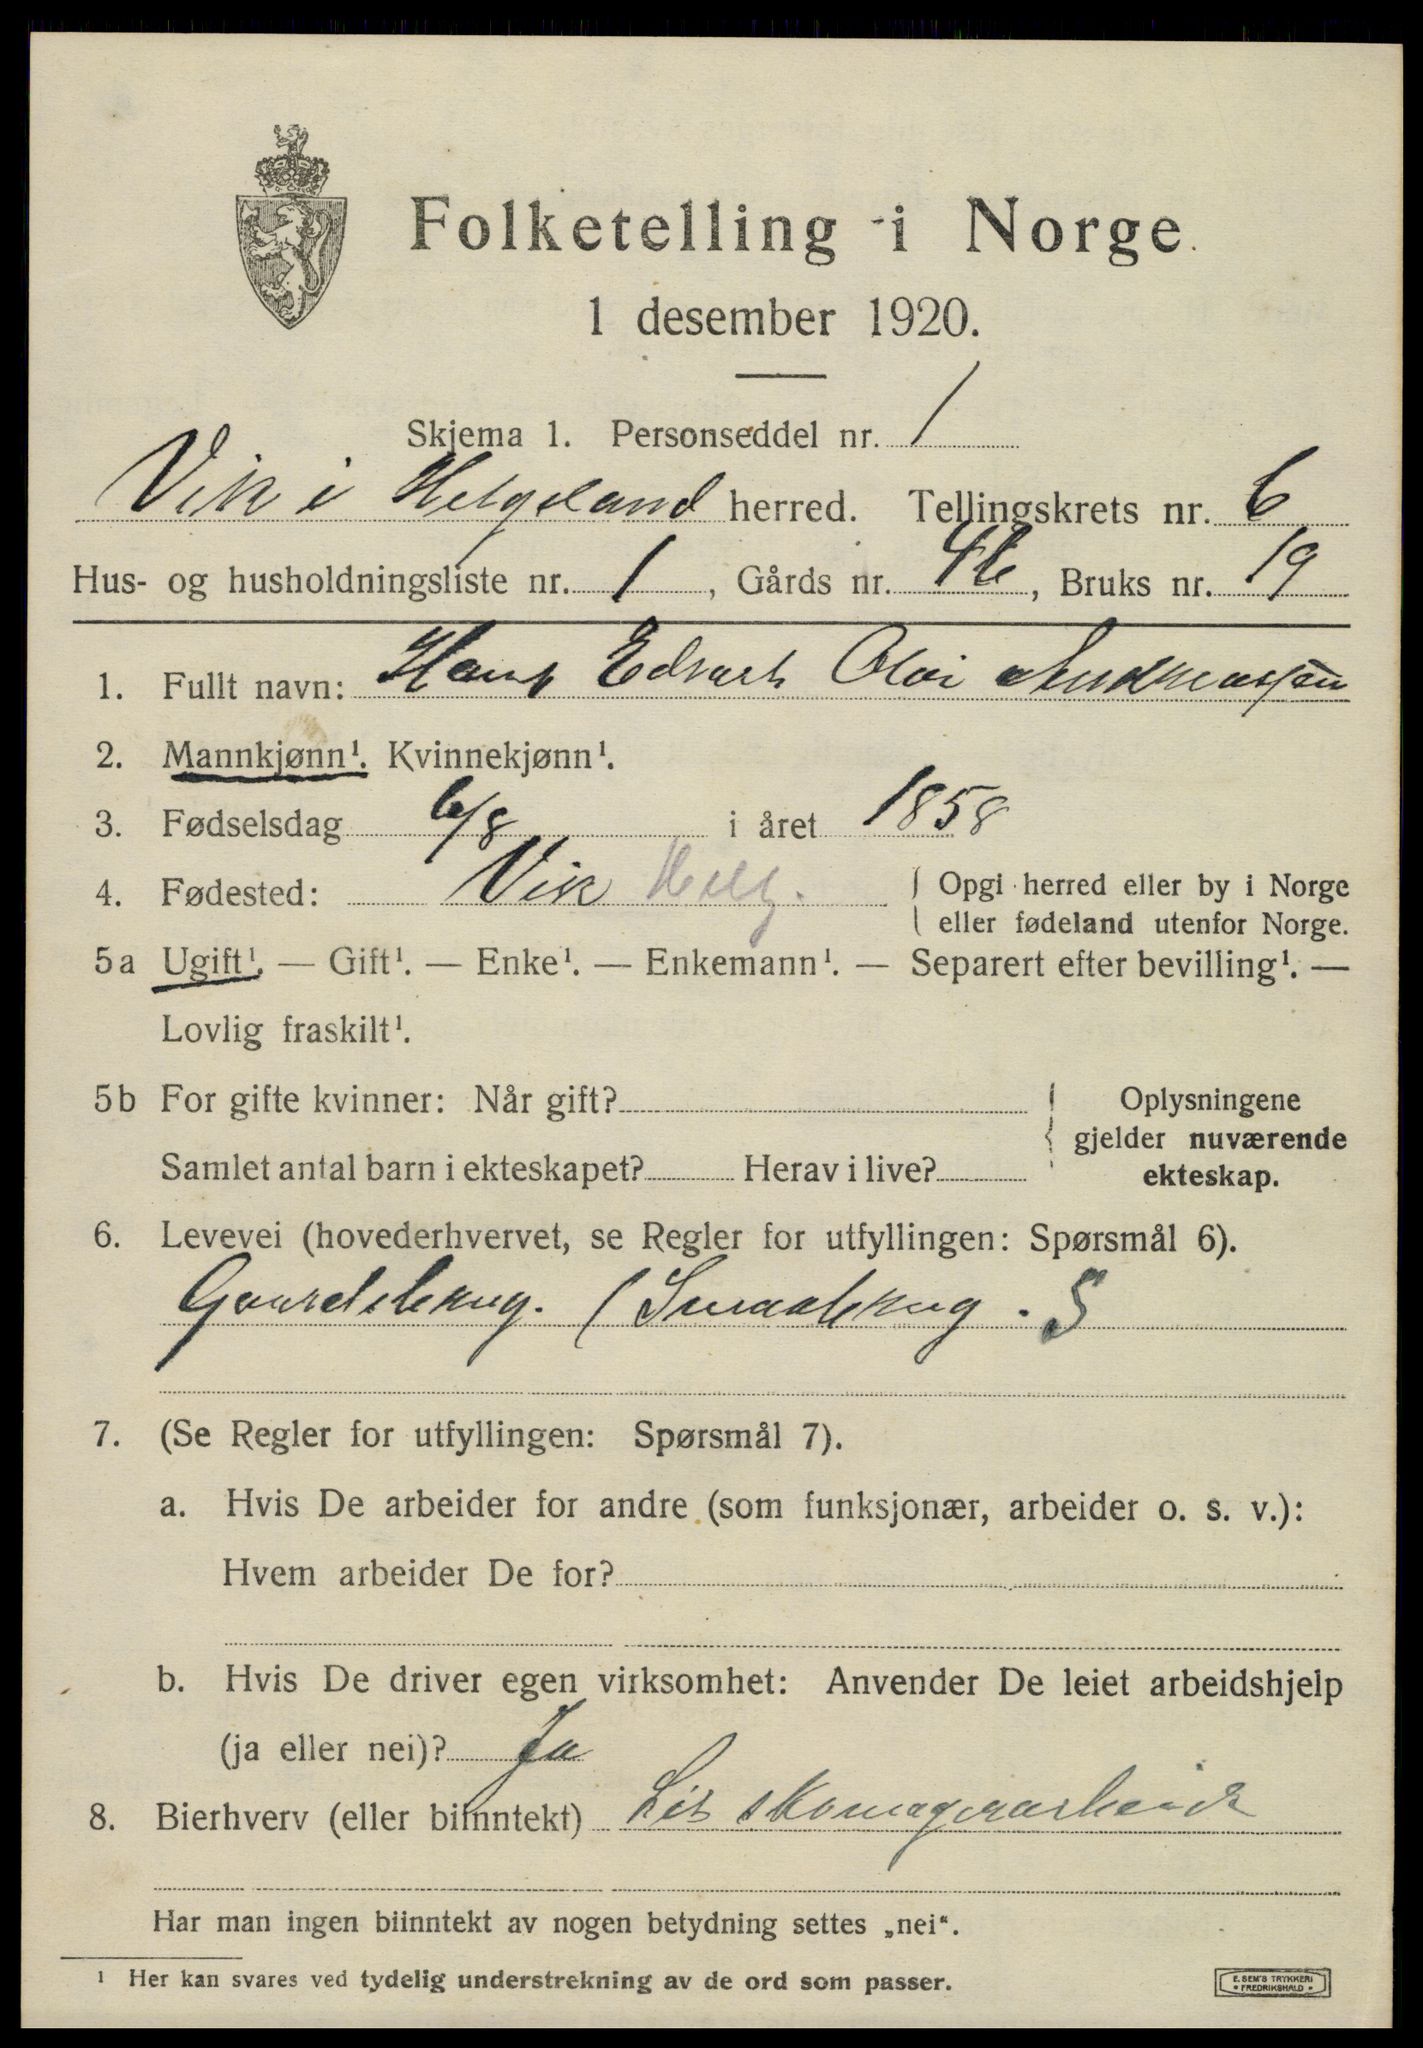 Folketelling i Norge
1 desember 1920.
Skjema 1. Personseddel nr. 1
Vik i Helgeland herred. Tellingskrets nr. 6
Hus- og husholdningsliste nr. 1, Gårds nr. 46, Bruks nr. 19
1. Fullt navn: Hans Edvart Olai Andreassen
2. Mannkjønn¹. Kvinnekjønn¹.
3. Fødselsdag 6/8 i året 1858
4. Fødested: Vik Helg. { Opgi herred eller by i Norge
eller fødeland utenfor Norge.
5a Ugift¹. — Gift¹. — Enke¹. — Enkemann¹. — Separert efter bevilling¹. —
Lovlig fraskilt¹.
5b For gifte kvinner: Når gift?
Samlet antal barn i ekteskapet? Herav i live?
Oplysningene
gjelder nuværende
ekteskap.
6. Levevei (hovederhvervet, se Regler for utfyllingen: Spørsmål 6).
Gaardsbrug. (Smaabrug. S
7. (Se Regler for utfyllingen: Spørsmål 7).
a. Hvis De arbeider for andre (som funksjonær, arbeider o. s. v.):
Hvem arbeider De for?
b. Hvis De driver egen virksomhet: Anvender De leiet arbeidshjelp
(ja eller nei)? Ja
8. Bierhverv (eller biinntekt) Lit skomagerarbeide
Har man ingen biinntekt av nogen betydning settes „nei“.
¹ Her kan svares ved tydelig understrekning av de ord som passer.
E. SEM'S TRYKKERI
• FREDRIKSHALD •